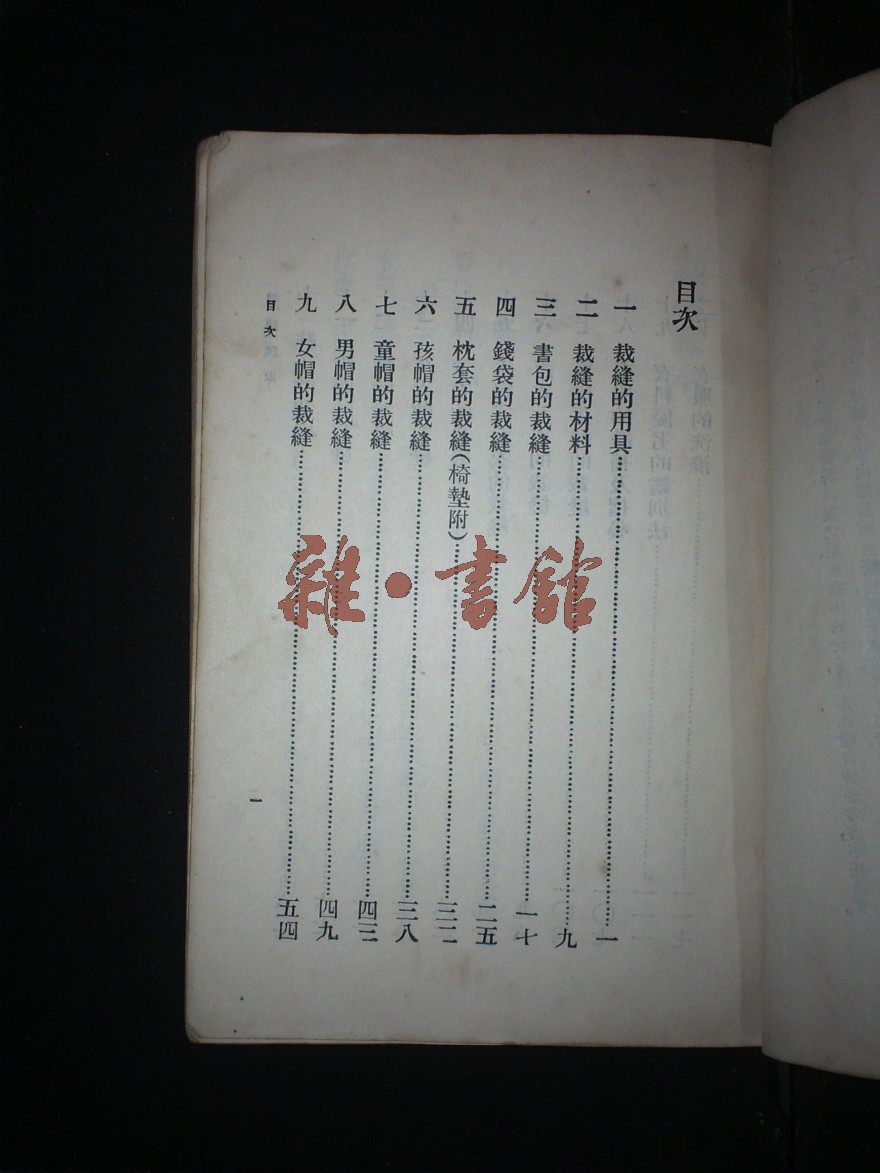 目次
一 裁縫的用具……一
二 裁縫的材料……九
三 書包的裁縫……一七
四 錢袋的裁縫……二五
五 枕套的裁縫(椅墊附)……三二
六 孩帽的裁縫……三八
七 童帽的裁縫……四三
八 男帽的裁縫……四九
九 女帽的裁縫……五四
目次
一
雜·書館